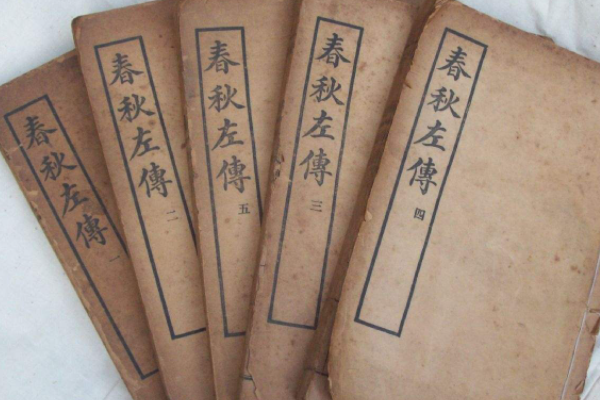 春秋左傳 一
春秋左傳 二
春秋左傳 五
春秋左傳 三
春秋左傳 四